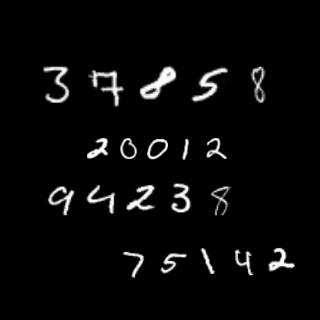 37858
20012
94238
75142